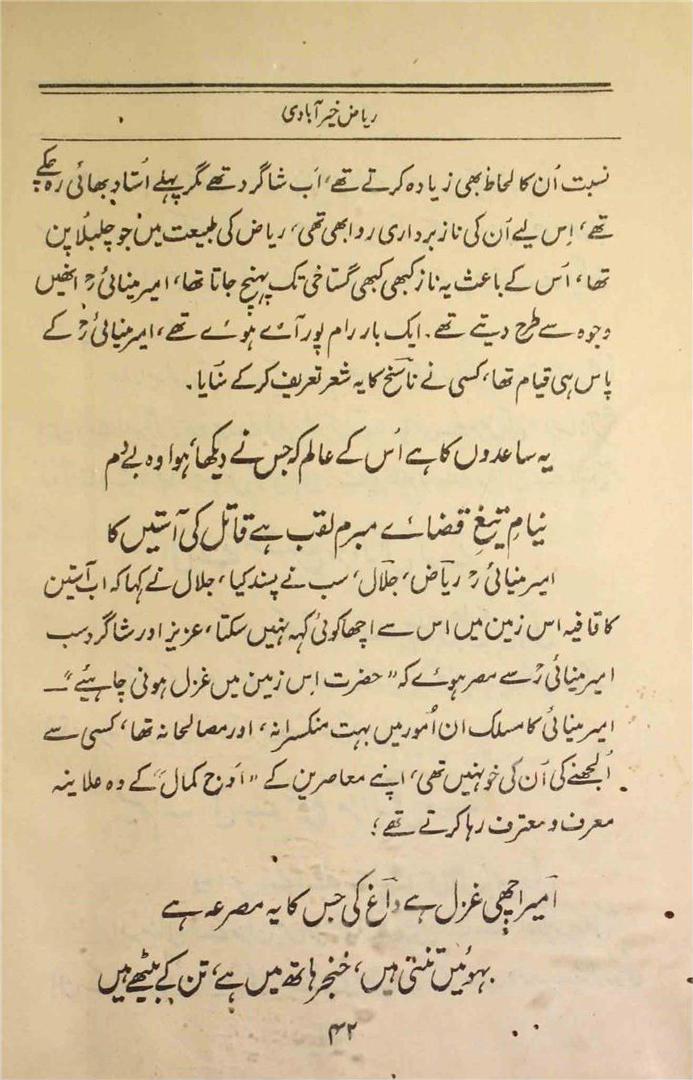 ریاض خیرآبادی
نسبت اُن کا لحاظ بھی زیادہ کرتے تھے، اَب شاگرد تھے مگر پہلے اُستاد بھائی رہ چکے
تھے، اِس لیے اُن کی ناز برداری روا بھی تھی، ریاض کی طبیعت میں جو چلبلا پن
تھا، اُس کے باعث یہ ناز کبھی کبھی گستاخی تک پہنچ جاتا تھا، امیر مینائیؒ انھیں
وجوہ سے طرح دیتے تھے۔ ایک بار رام پور آے ہوے تھے، امیر مینائیؒ کے
پاس ہی قیام تھا، کسی نے ناسخؔ کا یہ شعر تعریف کرکے سُنایا۔
یہ ساعدوں کا ہے اُس کے عالم کہ جس نے دیکھا، ہوا وہ بے دم
نیامِ تیغِ قضاے مبرم لقب ہے قاتل کی آستیں کا
امیر مینائیؒ ریاضؔ، جلالؔ، سب نے پسند کیا، جلال نے کہا کہ اب آستین
کا قافیہ اس زمین میں اس سے اچھا کوئی کہہ نہیں سکتا، عزیز اور شاگرد سب
امیر مینائیؒ سے مصر ہوے کہ "حضرت اِس زمین میں غزل ہونی چاہیئے" ــ
امیر مینائی کا مسلک ان اُمور میں بہت منکسرانہ، اور مصالحانہ تھا، کسی سے
اُلجھنے کی اُن کی خو نہیں تھی، اپنے معاصرین کے "اَوج کمال" کے وہ علاینہ
معرف و معترف رہا کرتے تھے؛
امیرؔ اچھی غزل ہے داغؔ کی جس کا یہ مصرعہ ہے
بہوئیں تنتی ہیں، خنجر ہاتھ میں ہے، تن کے بیٹھے ہیں
۴۲